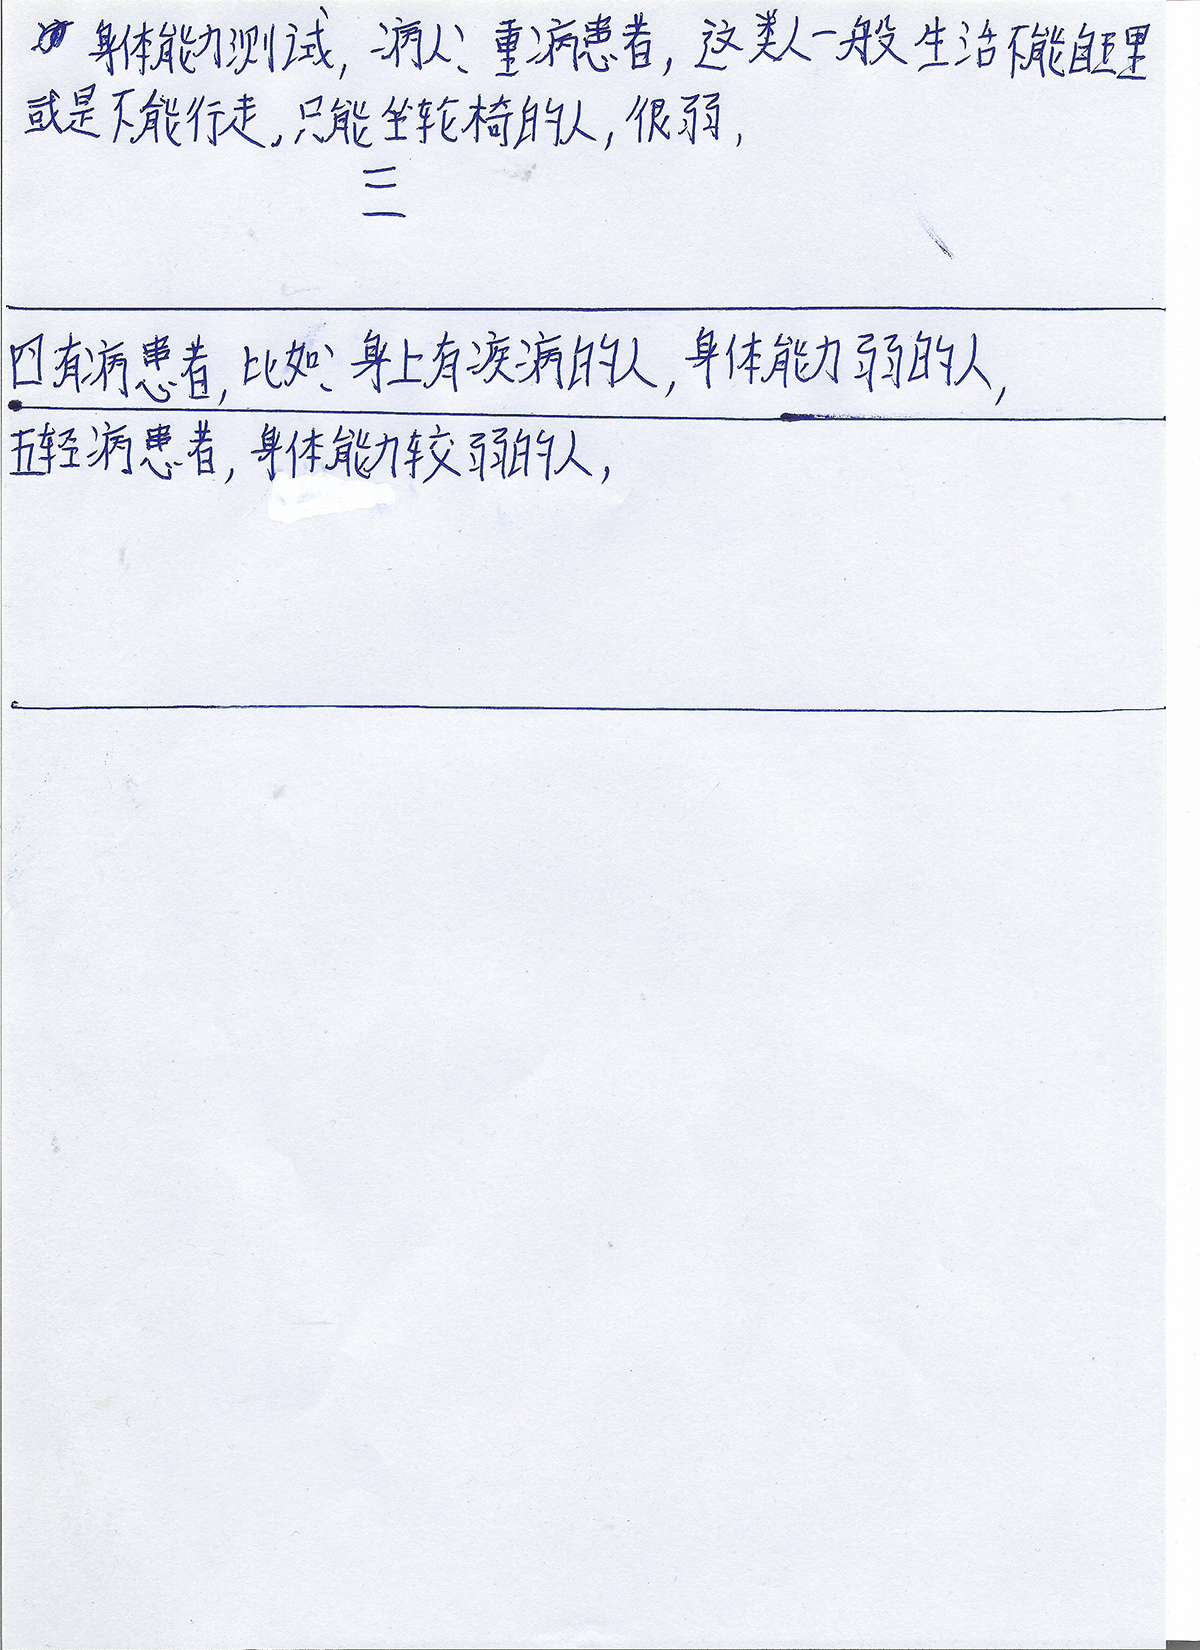 身体能力测试，病人、重病患者，这类人一般生活不能自理
或是不能行走，只能坐轮椅的人，很弱，
三
四有病患者，比如、身上有疾病的人，身体能力弱的人，
五轻病患者，身体能力较弱的人，